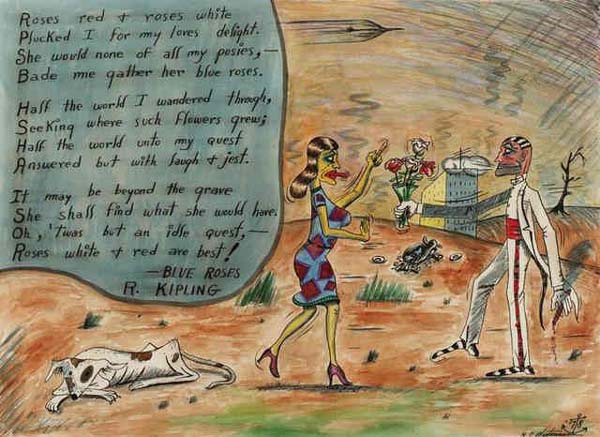 Roses red & roses white
Plucked I for my loves delight.
She would none of all my posies,—
Bade me gather her blue roses.
Half the world I wandered through,
Seeking where such flowers grew;
Half the world unto my quest
Answered but with laugh & jest.
It may be beyond the grave
She shall find what she would have.
Oh, 'twas but an idle quest,—
Roses white & red are best!
—BLUE ROSES
R. KIPLING